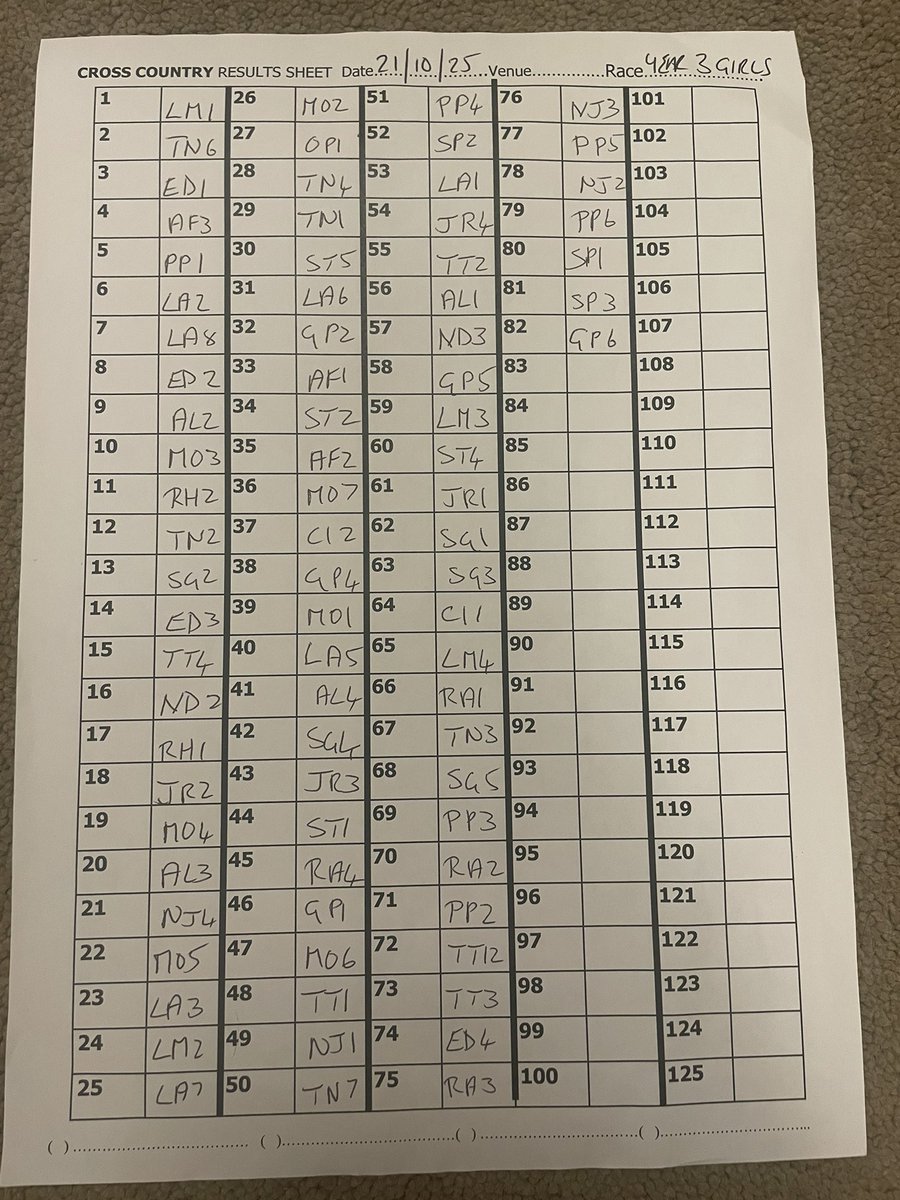 CROSS COUNTRY RESULTS SHEET Date..21/10/25..Venue..............Race..YEAR 3 GIRLS
1 LM1 26 MO2 51 PP4 76 NJ3 101
2 TN6 27 OP1 52 SP2 77 PP5 102
3 ED1 28 TN4 53 LA1 78 NJ2 103
4 AF3 29 TN1 54 JR4 79 PP6 104
5 PP1 30 ST5 55 TT2 80 SP1 105
6 LA2 31 LA6 56 AL1 81 SP3 106
7 LA8 32 GP2 57 ND3 82 GP6 107
8 ED2 33 AF1 58 GP5 83 108
9 AL2 34 ST2 59 LM3 84 109
10 MO3 35 AF2 60 ST4 85 110
11 RH2 36 MO7 61 JR1 86 111
12 TN2 37 CI2 62 SG1 87 112
13 SG2 38 GP4 63 SG3 88 113
14 ED3 39 MO1 64 CI1 89 114
15 TT4 40 LA5 65 LM4 90 115
16 ND2 41 AL4 66 RA1 91 116
17 RH1 42 SG4 67 TN3 92 117
18 JR2 43 JR3 68 SG5 93 118
19 MO4 44 ST1 69 PP3 94 119
20 AL3 45 RA4 70 RA2 95 120
21 NJ4 46 GP1 71 PP2 96 121
22 MO5 47 MO6 72 TT12 97 122
23 LA3 48 TT1 73 TT3 98 123
24 LM2 49 NJ1 74 ED4 99 124
25 LA7 50 TN7 75 RA3 100 125
( )................................ ( )................................( )................................( )................................